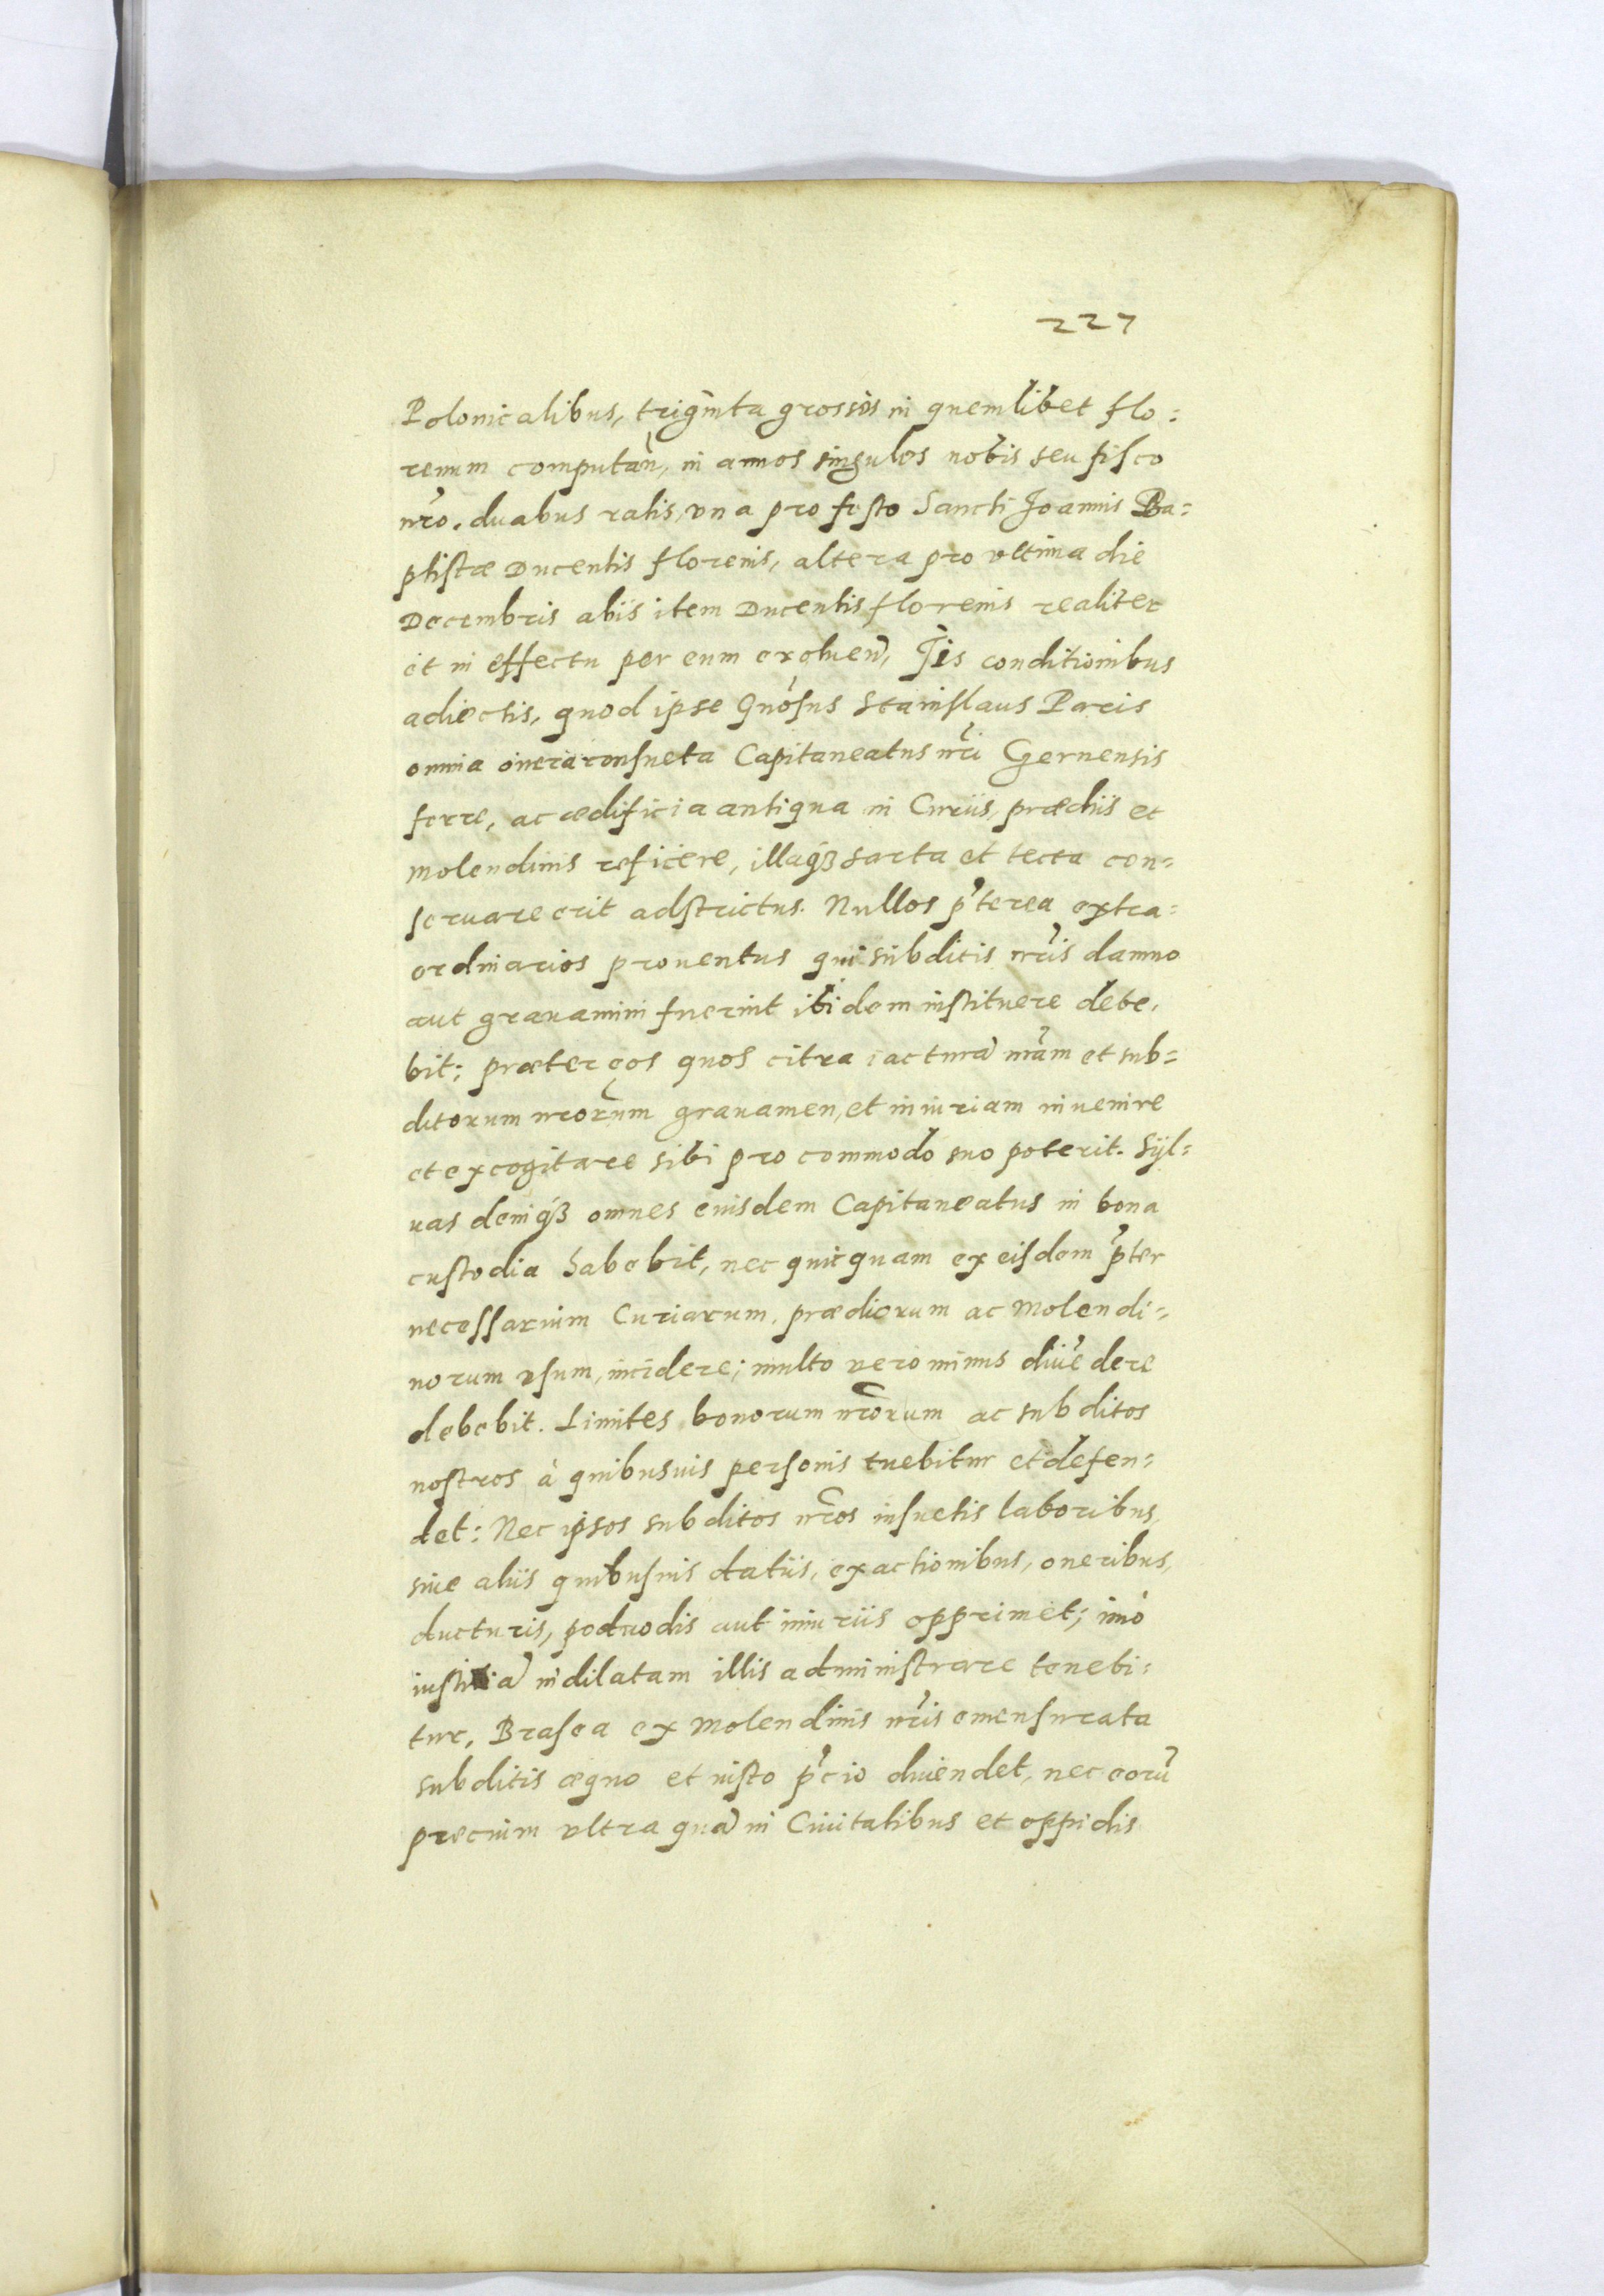 227
Polonicalibus, triginta grossis in quemlibet flo=
renum computañ, in annos singulos nobis seu fisco
nr̃o. duabus ratis, vna pro festo Sancti Joannis Ba=
ptistæ Ducentis florenis, altera pro vltima die
Decembris aliis item Ducentis florenis realiter
et in effectu per eum exoluen̄, Iis conditionibus
adiectis, quod ipse Gn̄osus Stanislaus Paris
omnia onera consueta Capitaneatus nr̃i Gernensis
ferre, ac ædificia antiqua in Curiis, prædiis et
molendinis reficere, illaqꝫ sarta et tecta con=
seruare erit adstrictus. Nullos p̃terea extra=
ordinarios prouentus qui subditis nr̃is damno
aut grauamini fuerint ibidem instituere debe,
bit; præter eos quos citra iacturā nr̃am et sub=
ditorum nr̃orum grauamen, et iniuriam inuenire
et excogitare sibi pro commodo suo poterit. Syl=
uas deniqꝫ omnes eiusdem Capitaneatus in bona
custodia habebit, nec quicquam ex eisdem p̃ter
necessarium Curiarum, prædiorum ac Molendi=
norum vsum, incidere; multo vero minus diuēdere
debebit. Limites bonorum nr̃orum ac subditos
nostros à quibusuis personis tuebitur et defen=
det: Nec ipsos subditos nr̃os insuetis laboribus,
siue aliis quibusuis datiis, exactionibus, oneribus,
ducturis, podwodis aut iniuriis opprimet; imò
iustitiā indilatam illis administrare tenebi=
tur, Brasea ex Molendinis nr̃is emensurata
subditis æquo et iusto p̃cio diuendet, nec eorū
precium vltra quā in Ciuitatibus et oppidis